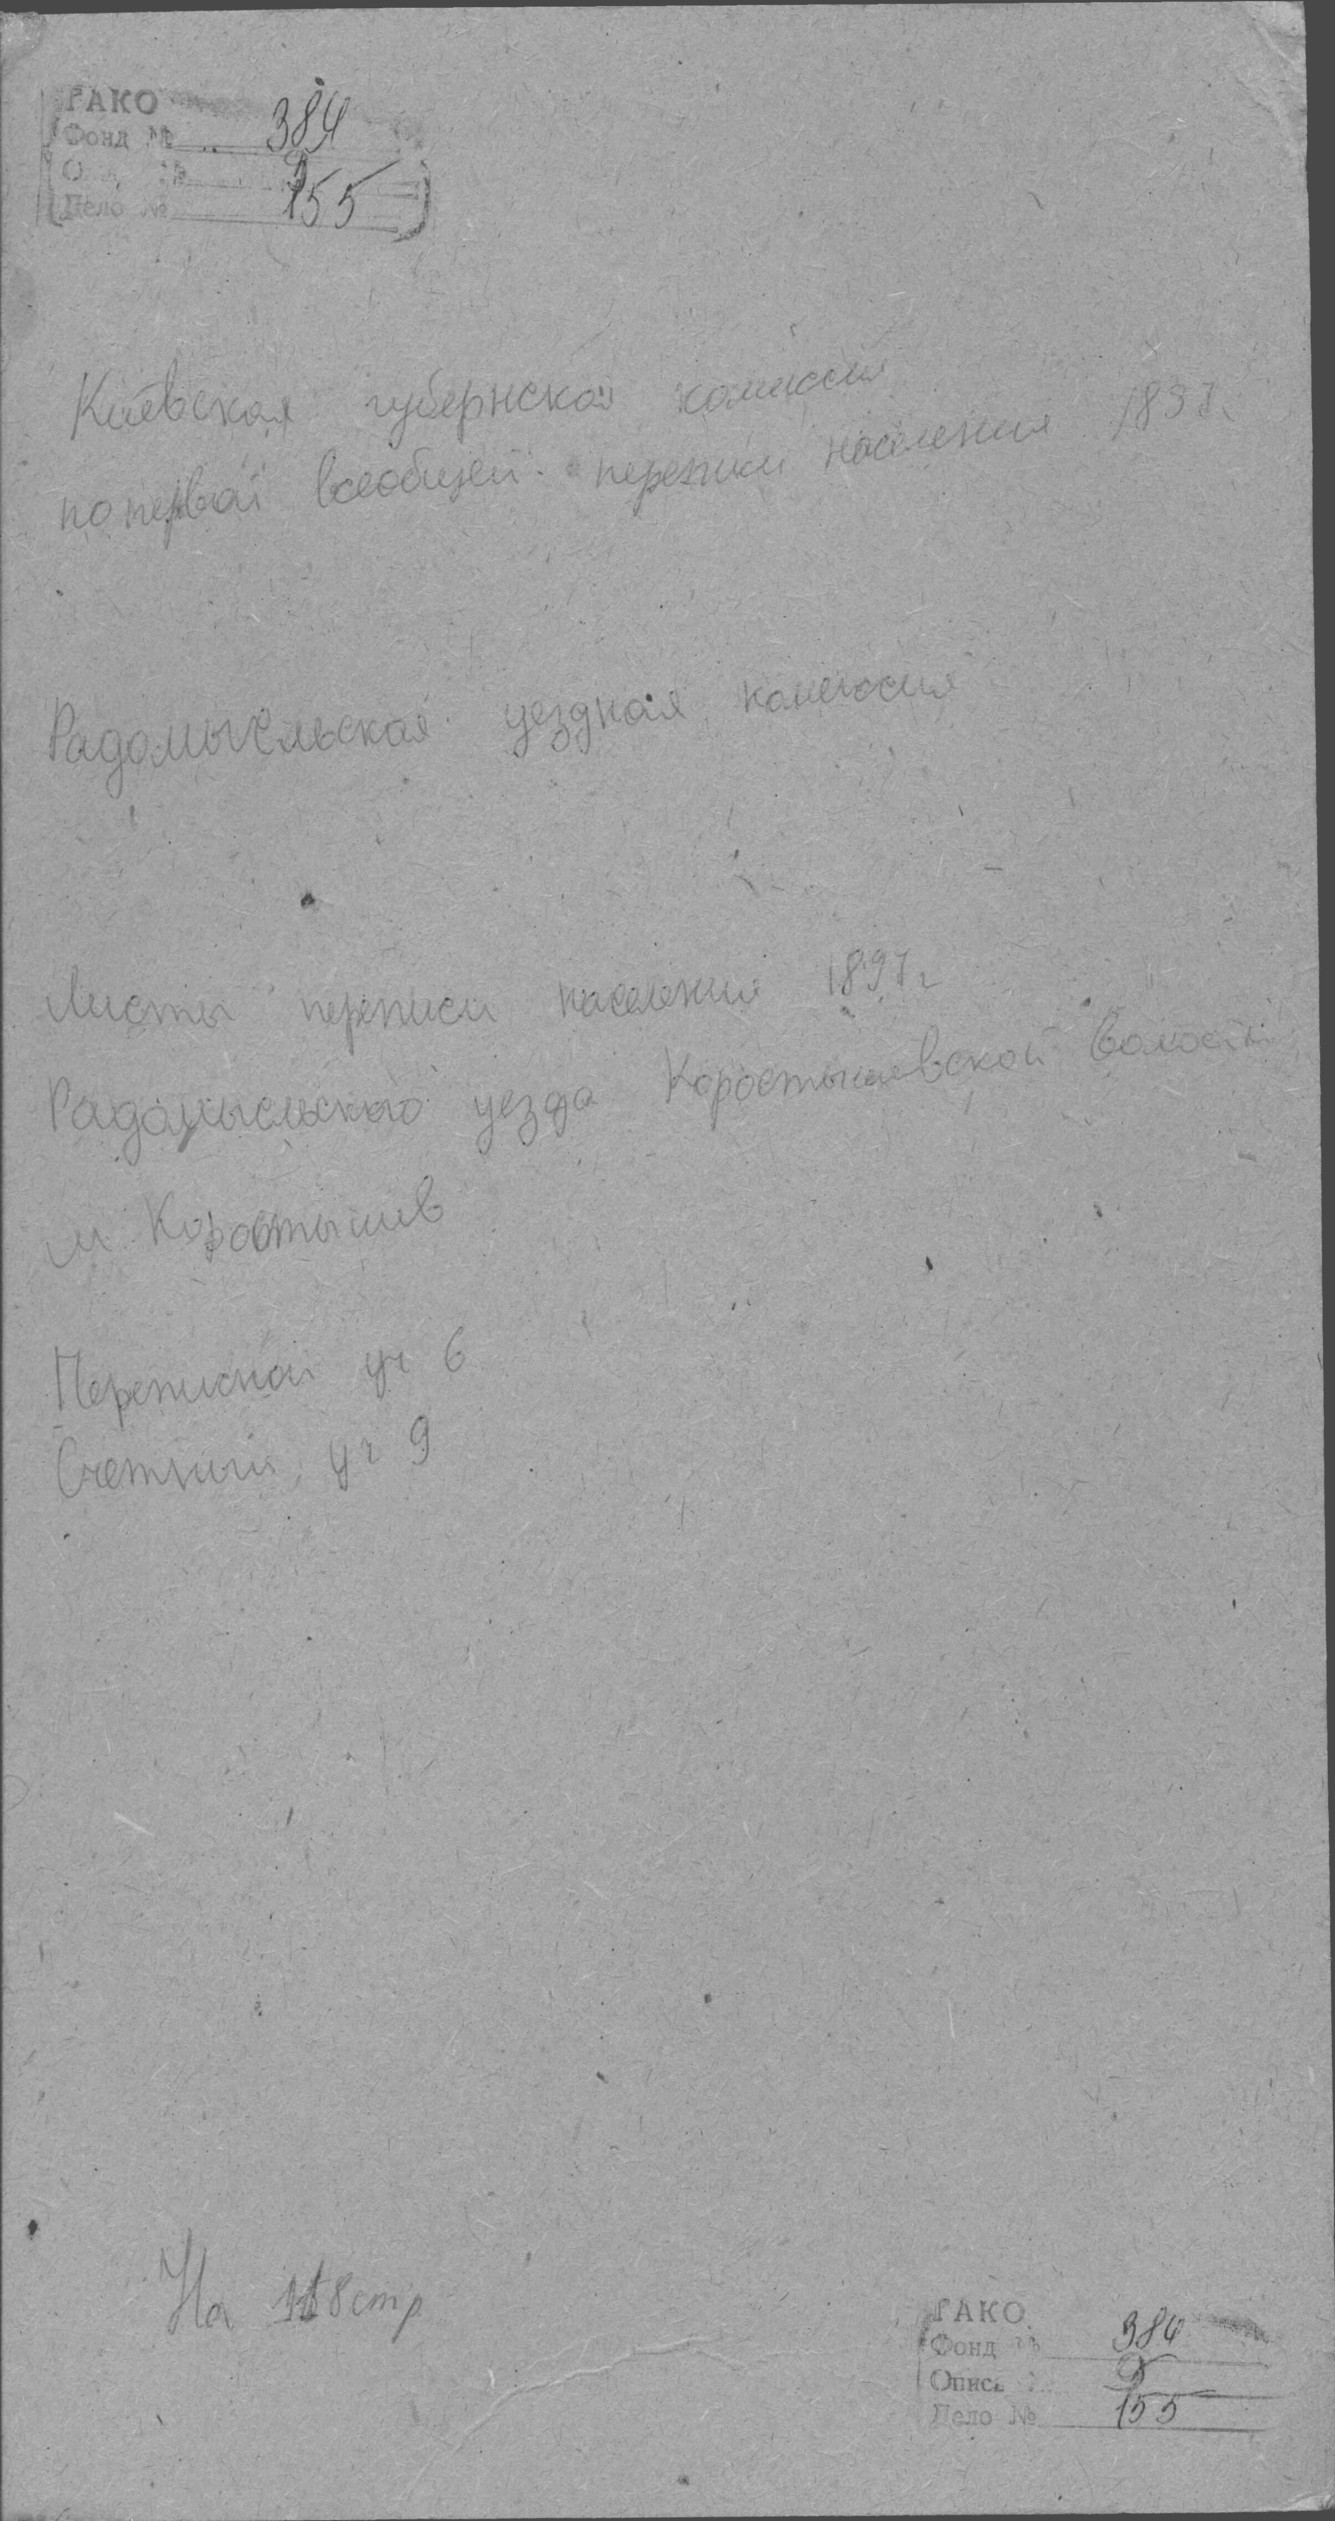 ГАКО
Фонд № 384
О № 9
Дело № 155
Киевская губернская комиссия
по первой всеобщей переписи населения 1897г.
Радомысльская уездная комиссия
Листы переписи населения 1897г
Радомысльского уезда Коростышевской волости
м. Коростышев
Переписной уч 6
Счетный уч 9
На 118 стр
ГАКО
Фонд № 384
Опись 9
Дело № 155